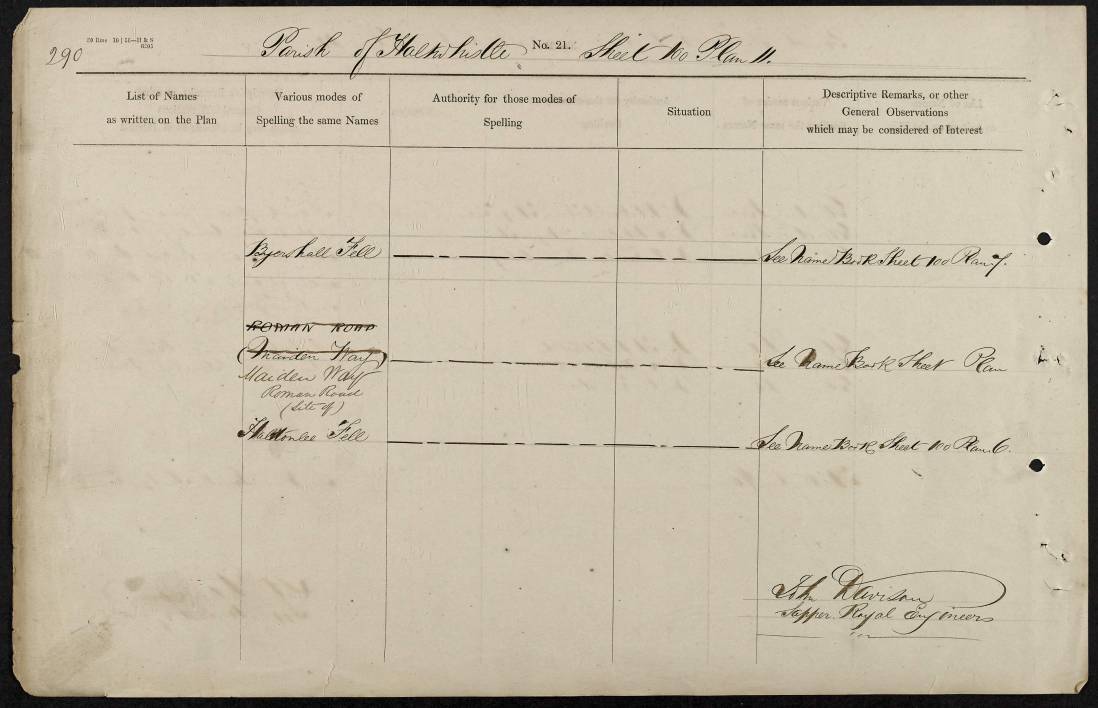 290
Parish of Haltwhistle No. 21. Sheet 100 Plan 11.
List of Names
as written on the Plan
Various modes of
Spelling the same Names
Authority for those modes of
Spelling
Situation
Descriptive Remarks, or other
General Observations
which may be considered of Interest
Byershall Fell See Name Book Sheet 100 Plan 7.
ROMAN ROAD
(Maiden Way) See Name Book Sheet Plan
Maiden Way
Roman Road
(Site of)
Haltonlee Fell See Name Book Sheet 100 Plan 6.
John Davison
Sapper Royal Engineers